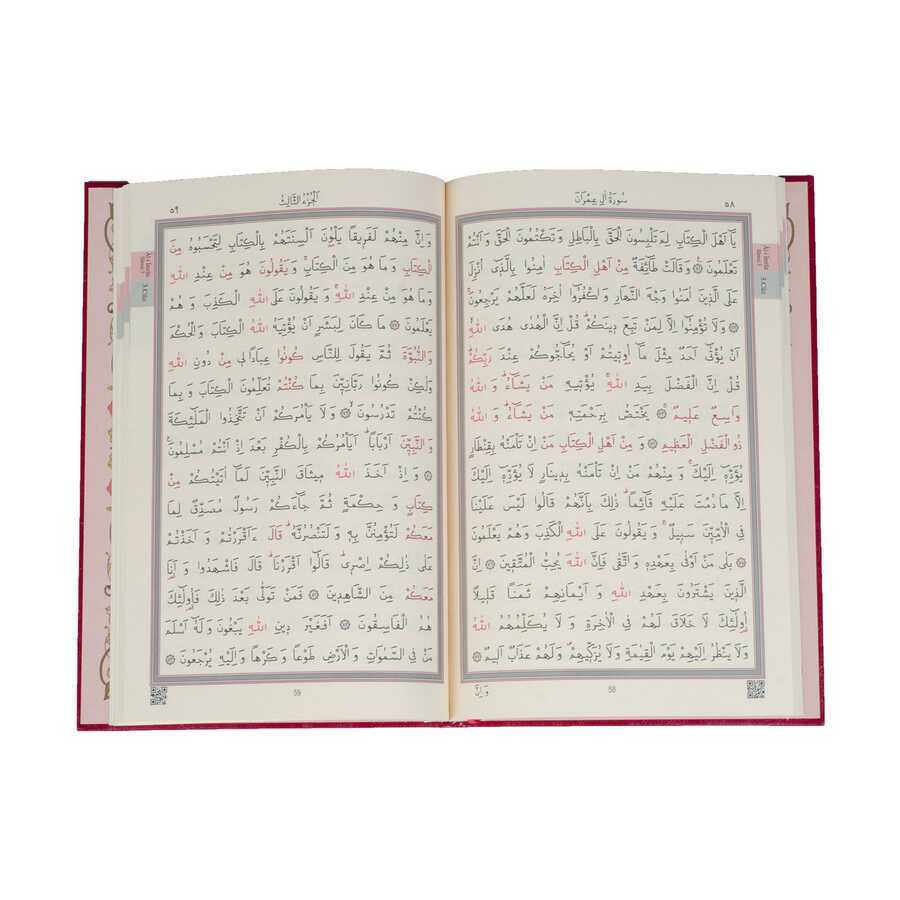 ٥٨
سُورَةُ اٰلِ عِمْرٰنَ
يَٓا اَهْلَ الْكِتَابِ لِمَ تَلْبِسُونَ الْحَقَّ بِالْبَاطِلِ وَ تَكْتُمُونَ الْحَقَّ وَ اَنْتُمْ
تَعْلَمُونَ ۞ وَ قَالَتْ طَٓائِفَةٌ مِنْ اَهْلِ الْكِتَابِ اٰمِنُوا بِالَّذ۪ٓي اُنْزِلَ
عَلَى الَّذ۪ينَ اٰمَنُوا وَجْهَ النَّهَارِ وَ اكْفُرُٓوا اٰخِرَهُ لَعَلَّهُمْ يَرْجِعُونَۚ
۞ وَ لَا تُؤْمِنُٓوا اِلَّا لِمَنْ تَبِعَ د۪ينَكُمْۜ قُلْ اِنَّ الْهُدٰى هُدَى اللّٰهِۙ
اَنْ يُؤْتٰٓى اَحَدٌ مِثْلَ مَٓا اُو۫ت۪يتُمْ اَوْ يُحَٓاجُّوكُمْ عِنْدَ رَبِّكُمْۜ
قُلْ اِنَّ الْفَضْلَ بِيَدِ اللّٰهِۚ يُؤْت۪يهِ مَنْ يَشَٓاءُۜ وَ اللّٰهُ
وَاسِعٌ عَل۪يمٌۚ ۞ يَخْتَصُّ بِرَحْمَتِه۪ مَنْ يَشَٓاءُۜ وَ اللّٰهُ
ذُو الْفَضْلِ الْعَظ۪يمِ ۞ وَ مِنْ اَهْلِ الْكِتَابِ مَنْ اِنْ تَأْمَنْهُ بِقِنْطَارٍ
يُؤَدِّه۪ٓ اِلَيْكَۚ وَ مِنْهُمْ مَنْ اِنْ تَأْمَنْهُ بِد۪ينَارٍ لَا يُؤَدِّه۪ٓ اِلَيْكَ
اِلَّا مَا دُمْتَ عَلَيْهِ قَٓائِمًاۜ ذٰلِكَ بِاَنَّهُمْ قَالُوا لَيْسَ عَلَيْنَا
فِي الْاُمِّيّ۪نَ سَب۪يلٌۚ وَ يَقُولُونَ عَلَى اللّٰهِ الْكَذِبَ وَ هُمْ يَعْلَمُونَ
۞ بَلٰى مَنْ اَوْفٰى بِعَهْدِه۪ وَ اتَّقٰى فَاِنَّ اللّٰهَ يُحِبُّ الْمُتَّق۪ينَ ۞ اِنَّ
الَّذ۪ينَ يَشْتَرُونَ بِعَهْدِ اللّٰهِ وَ اَيْمَانِهِمْ ثَمَنًا قَل۪يلًا
اُو۬لٰٓئِكَ لَا خَلَاقَ لَهُمْ فِي الْاٰخِرَةِ وَ لَا يُكَلِّمُهُمُ اللّٰهُ
وَ لَا يَنْظُرُ اِلَيْهِمْ يَوْمَ الْقِيٰمَةِ وَ لَا يُزَكّ۪يهِمْ وَ لَهُمْ عَذَابٌ اَل۪يمٌ ۞
58
وَ اِنَّ
الْجُزْءُ الثَّالِثُ
٥٩
وَ اِنَّ مِنْهُمْ لَفَر۪يقًا يَلْوُ۫نَ اَلْسِنَتَهُمْ بِالْكِتَابِ لِتَحْسَبُوهُ مِنَ
الْكِتَابِ وَ مَا هُوَ مِنَ الْكِتَابِۚ وَ يَقُولُونَ هُوَ مِنْ عِنْدِ اللّٰهِ
وَ مَا هُوَ مِنْ عِنْدِ اللّٰهِۚ وَ يَقُولُونَ عَلَى اللّٰهِ الْكَذِبَ وَ هُمْ
يَعْلَمُونَ ۞ مَا كَانَ لِبَشَرٍ اَنْ يُؤْتِيَهُ اللّٰهُ الْكِتَابَ وَ الْحُكْمَ
وَ النُّبُوَّةَ ثُمَّ يَقُولَ لِلنَّاسِ كُونُوا عِبَادًا ل۪ي مِنْ دُونِ اللّٰهِ
وَ لٰكِنْ كُونُوا رَبَّانِيّ۪نَ بِمَا كُنْتُمْ تُعَلِّمُونَ الْكِتَابَ وَ بِمَا
كُنْتُمْ تَدْرُسُونَۙ ۞ وَ لَا يَأْمُرَكُمْ اَنْ تَتَّخِذُوا الْمَلٰٓئِكَةَ
وَ النَّبِيّ۪نَ اَرْبَابًاۜ اَيَأْمُرُكُمْ بِالْكُفْرِ بَعْدَ اِذْ اَنْتُمْ مُسْلِمُونَ۟
۞ وَ اِذْ اَخَذَ اللّٰهُ م۪يثَاقَ النَّبِيّ۪نَ لَمَٓا اٰتَيْتُكُمْ مِنْ
كِتَابٍ وَ حِكْمَةٍ ثُمَّ جَٓاءَكُمْ رَسُولٌ مُصَدِّقٌ لِمَا
مَعَكُمْ لَتُؤْمِنُنَّ بِه۪ وَ لَتَنْصُرُنَّهُۜ قَالَ ءَاَقْرَرْتُمْ وَ اَخَذْتُمْ
عَلٰى ذٰلِكُمْ اِصْر۪يۜ قَالُٓوا اَقْرَرْنَاۜ قَالَ فَاشْهَدُوا وَ اَنَا۬
مَعَكُمْ مِنَ الشَّاهِد۪ينَ ۞ فَمَنْ تَوَلّٰى بَعْدَ ذٰلِكَ فَاُو۬لٰٓئِكَ
هُمُ الْفَاسِقُونَ ۞ اَفَغَيْرَ د۪ينِ اللّٰهِ يَبْغُونَ وَ لَهُٓ اَسْلَمَ
مَنْ فِي السَّمٰوَاتِ وَ الْاَرْضِ طَوْعًا وَ كَرْهًا وَ اِلَيْهِ يُرْجَعُونَ ۞
59